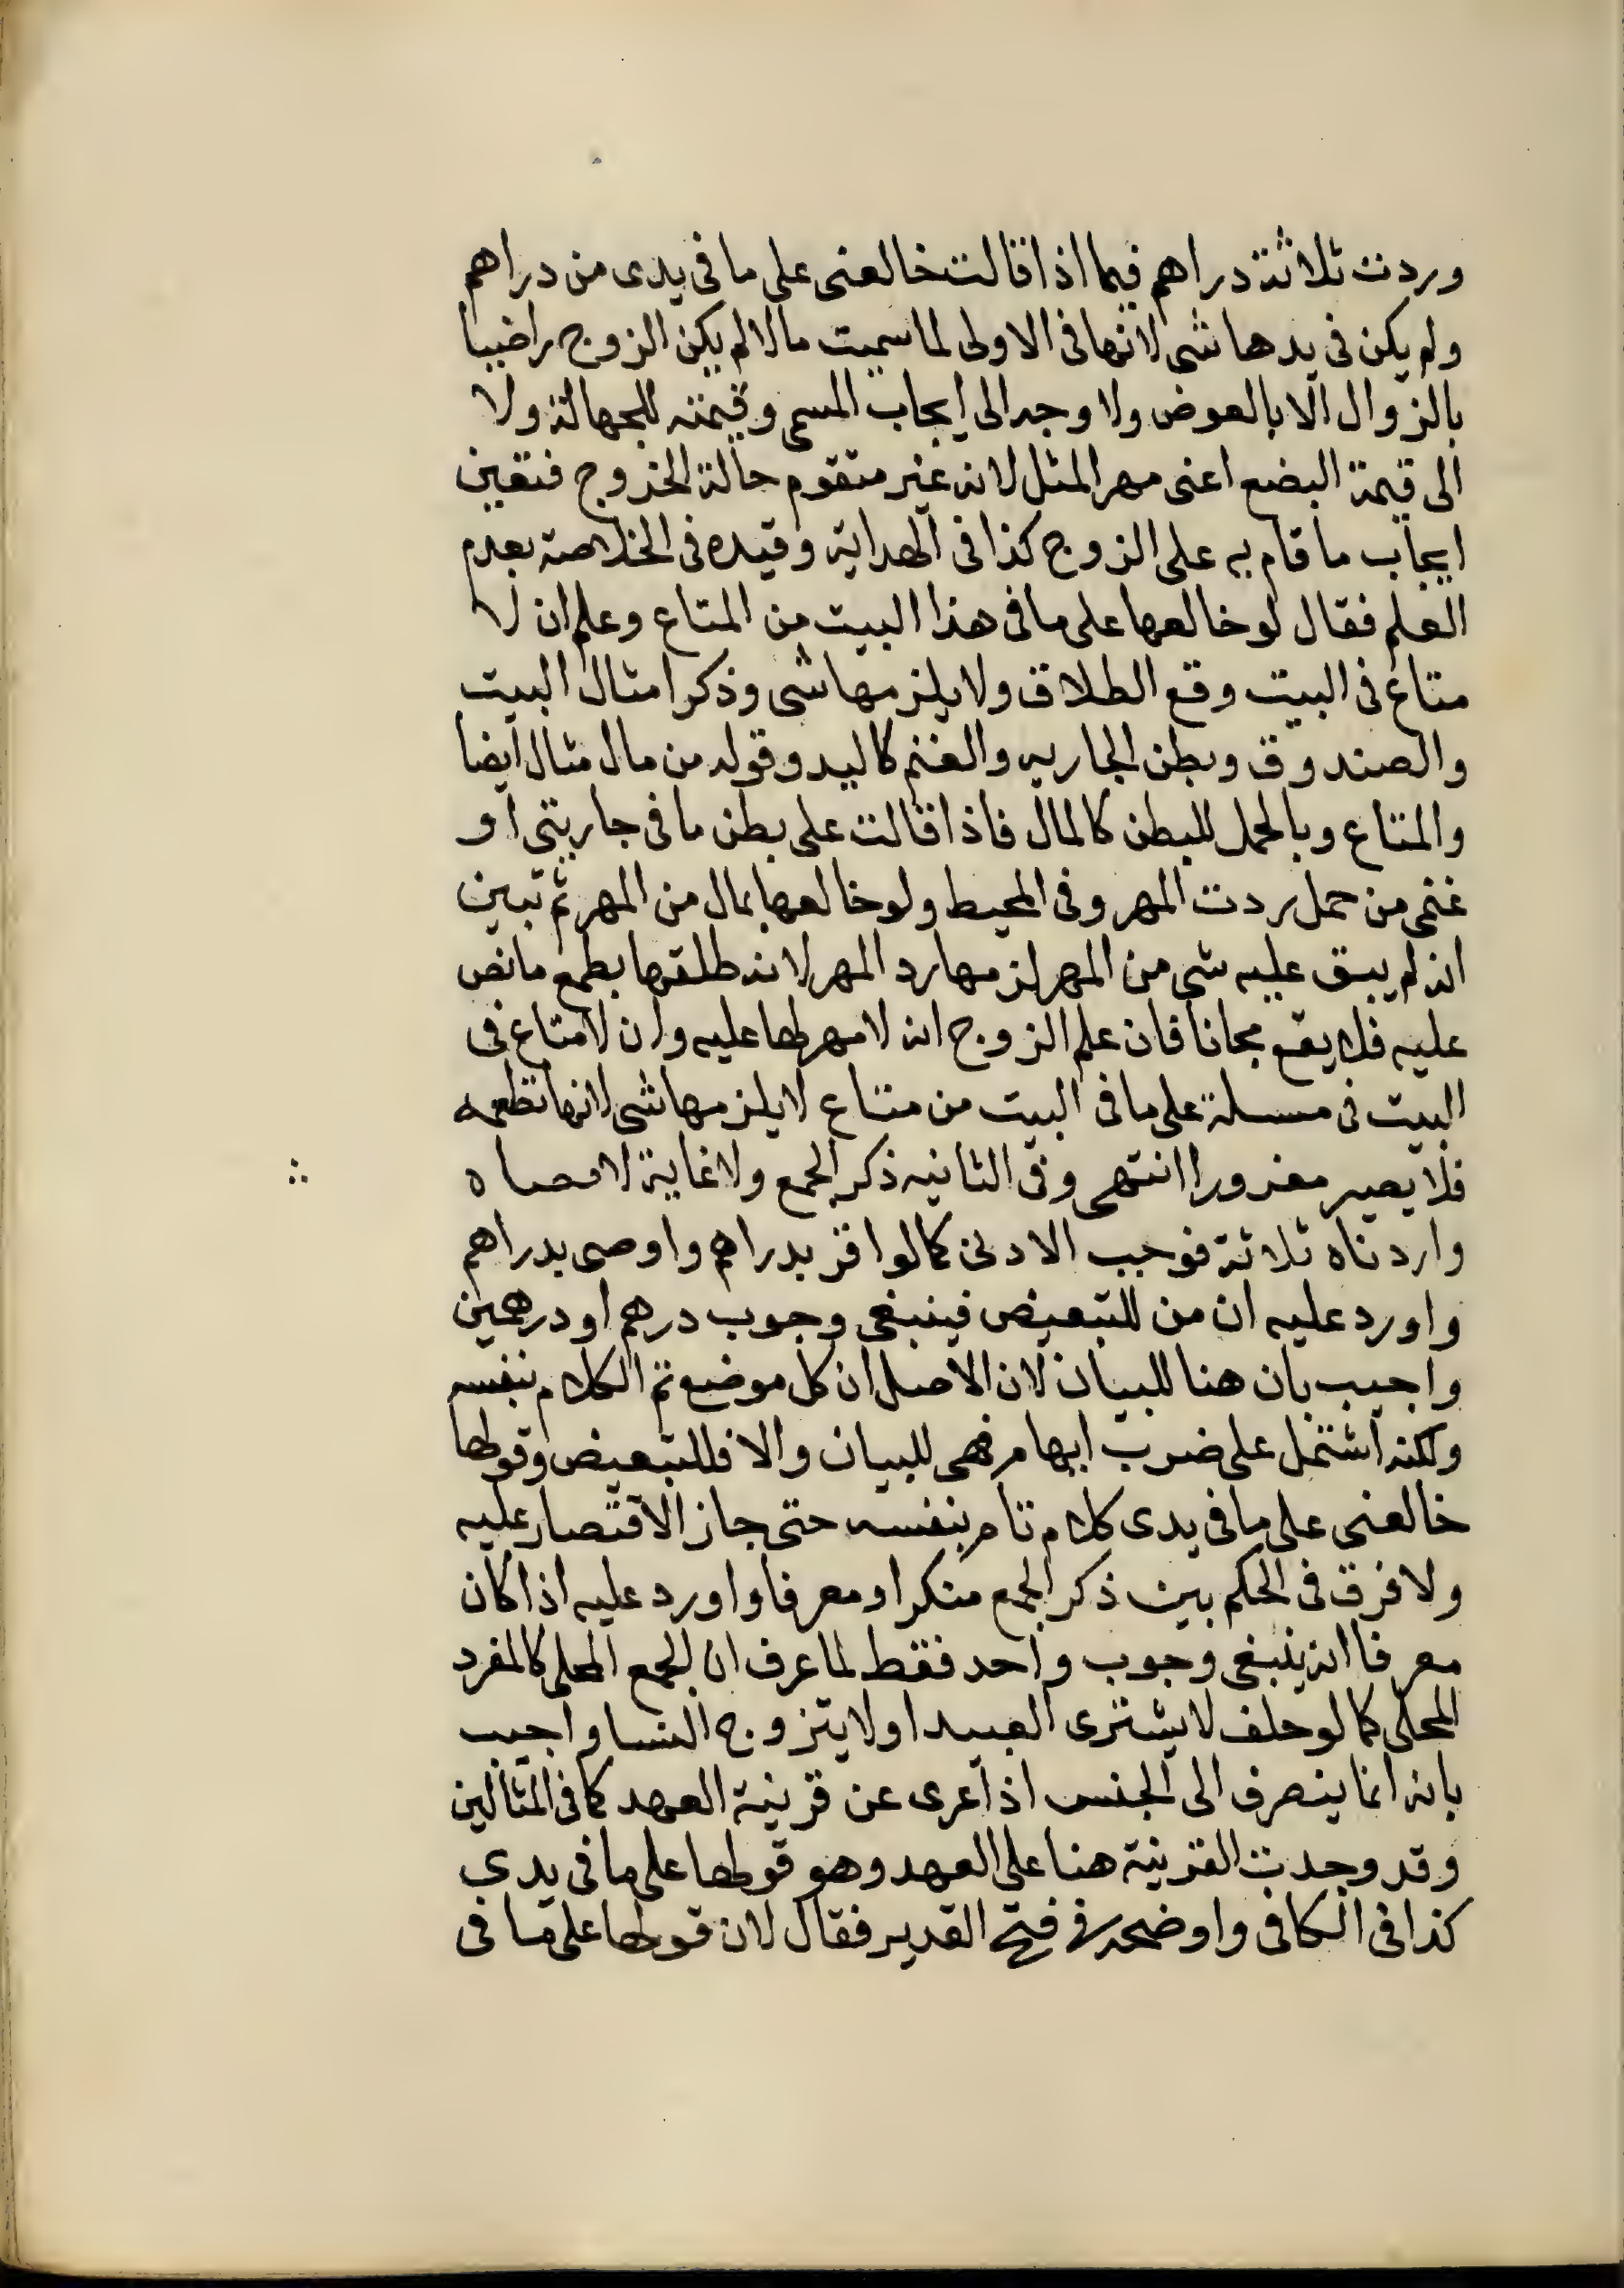 وردت ثلاثة دراهم فيما اذا قالت خالعنى على ما فى يدى من دراهم
ولم يكن فى يدها شى لانها فى الاولى لما سميت مالا لم يكن الزوج راضيا
بالزوال الا بالعوض ولا وجه الى ايجاب المسمى وقيمته للجهالة ولا
الى قيمة البضع اعنى مهر المثل لانه غير متقوم حالة الخروج فتعين
ايجاب ما قام به على الزوج كذا فى الهداية وقيده فى الخلاصة بعدم
العلم فقال لو خالعها على ما فى هذا البيت من المتاع وعلم ان لا
متاع فى البيت وقع الطلاق ولا يلزمها شى وذكر امثال البيت
والصندوق وبطن الجاريه والغنم كاليد وقوله من مال مثال ايضا
والمتاع وبالحمل للبطن كالمال فاذا قالت على بطن ما فى جاريتى او
غنمى من حمل ردت المهر وفى المحيط ولو خالعها بمال من المهر ثم تبين
انه لم يبق عليه شى من المهر لزمها رد المهر لانه طلقها بطمع ما نص
عليه فلا يقع مجانا فان علم الزوج انه لا مهر لها عليه وان لا متاع فى
البيت فى مسلة على ما فى البيت من متاع لا يلزمها شى لانها تطمعه
فلا يصير مغرورا انتهى وفى الثانيه ذكر الجمع ولا غاية لاقصاه
واردناه ثلاثة فوجب الادنى كما لو اقر بدراهم واوصى بدراهم
واورد عليه ان من للتبعيض فينبغى وجوب درهم او درهمين
واجيب بان هنا للبيان لان الاصل ان كل موضع تم الكلام بنفسه
ولكنه اشتمل على ضرب ابهام فهى للبيان والا فللتبعيض وقولها
خالعنى على ما فى يدى كلام تام بنفسه حتى جاز الاقتصار عليه
ولا فرق فى الحكم بين ذكر الجمع منكرا ومعرفا واورد عليه اذا كان
معرفا انه ينبغى وجوب واحد فقط لما عرف ان الجمع المحلى كالمفرد
المحلى كما لو حلف لا يشترى العبيد او لا يتزوج النسا واجيب
بانه انما ينصرف الى الجنس اذا عرى عن قرينة العهد كما فى المثالين
وقد وجدت القرينة هنا على العهد وهو قولها على ما فى يدي
كذا فى الكافى واوضحه فى فتح القدير فقال لان قولها على ما فى